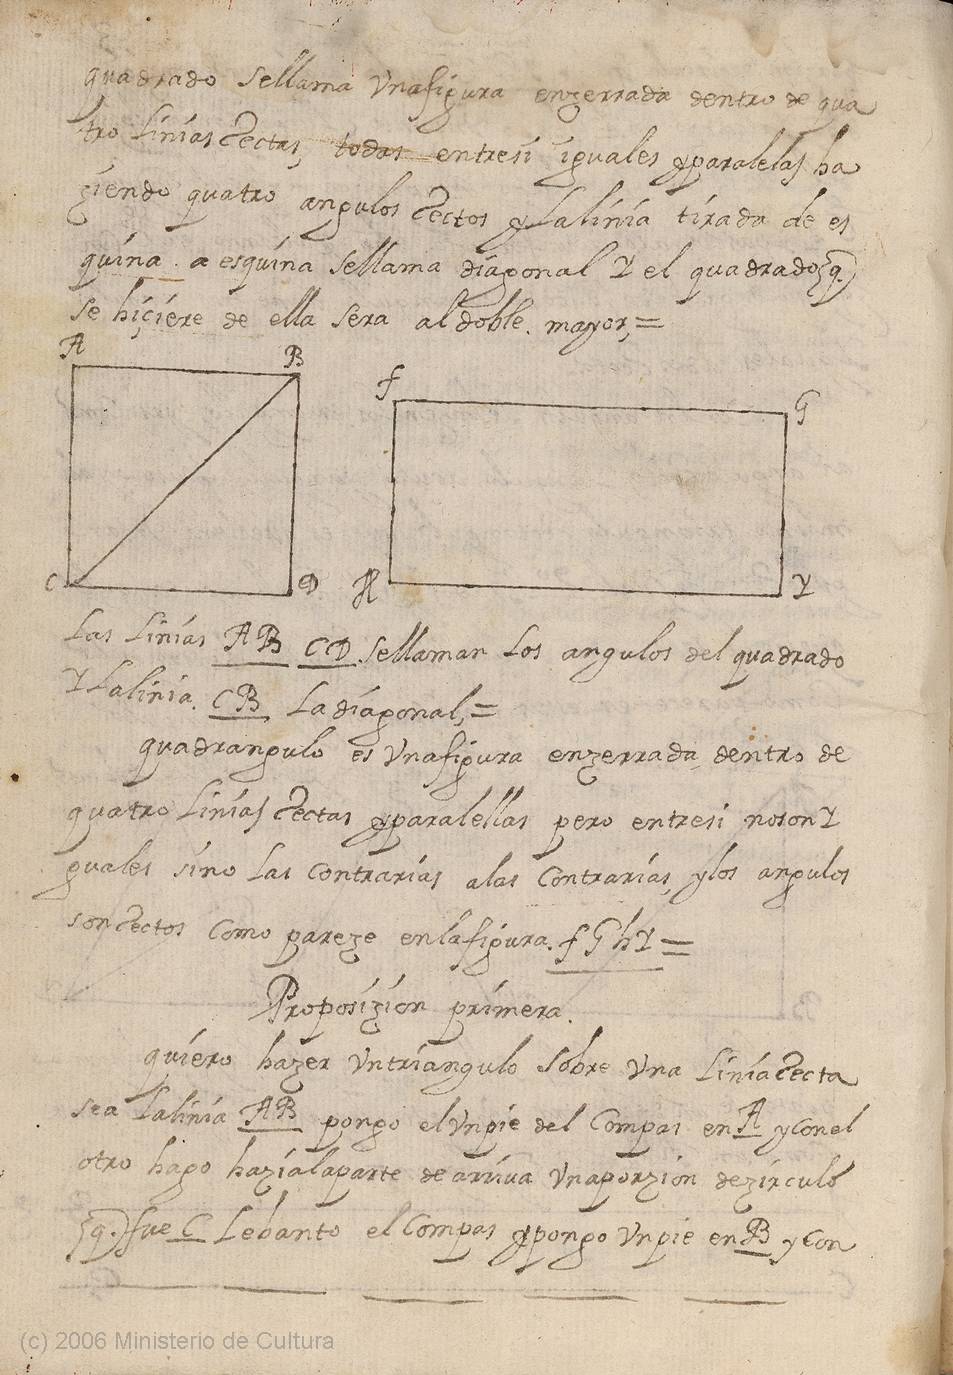 quadrado sellama Vnafigura enzerrada dentro de qua
tro linias rectas, todas entresi iguales yparalelas ha
ziendo quatro angulos rectos ylalinia tirada de es
quina a esquina sellama diagonal Y el quadrado q.
se hiçiere de ella sera al doble. mayor,=
A
B
f
G
C
D
H
Y
Las linias AB CD. sellaman los angulos del quadrado
Ylalinia. CB la diagonal,=
quadrangulo es Vnafigura enzerrada dentro de
quatro linias rectas yparalellas pero entresi nosonY
guales sino las contrarias alas contrarias, ylos angulos
sonrectos como pareze enlafigura. fGhY=
Proposizion primera.
quiero hazer Vntriangulo sobre Vna linia recta
sea lalinia AB pongo elVnpie del compas en A yconel
otro hago hazialaparte de arriva Vnaporzion dezirculo
q. fue C lebanto el compas ypongo Vnpie en B ycon
(c) 2006 Ministerio de Cultura